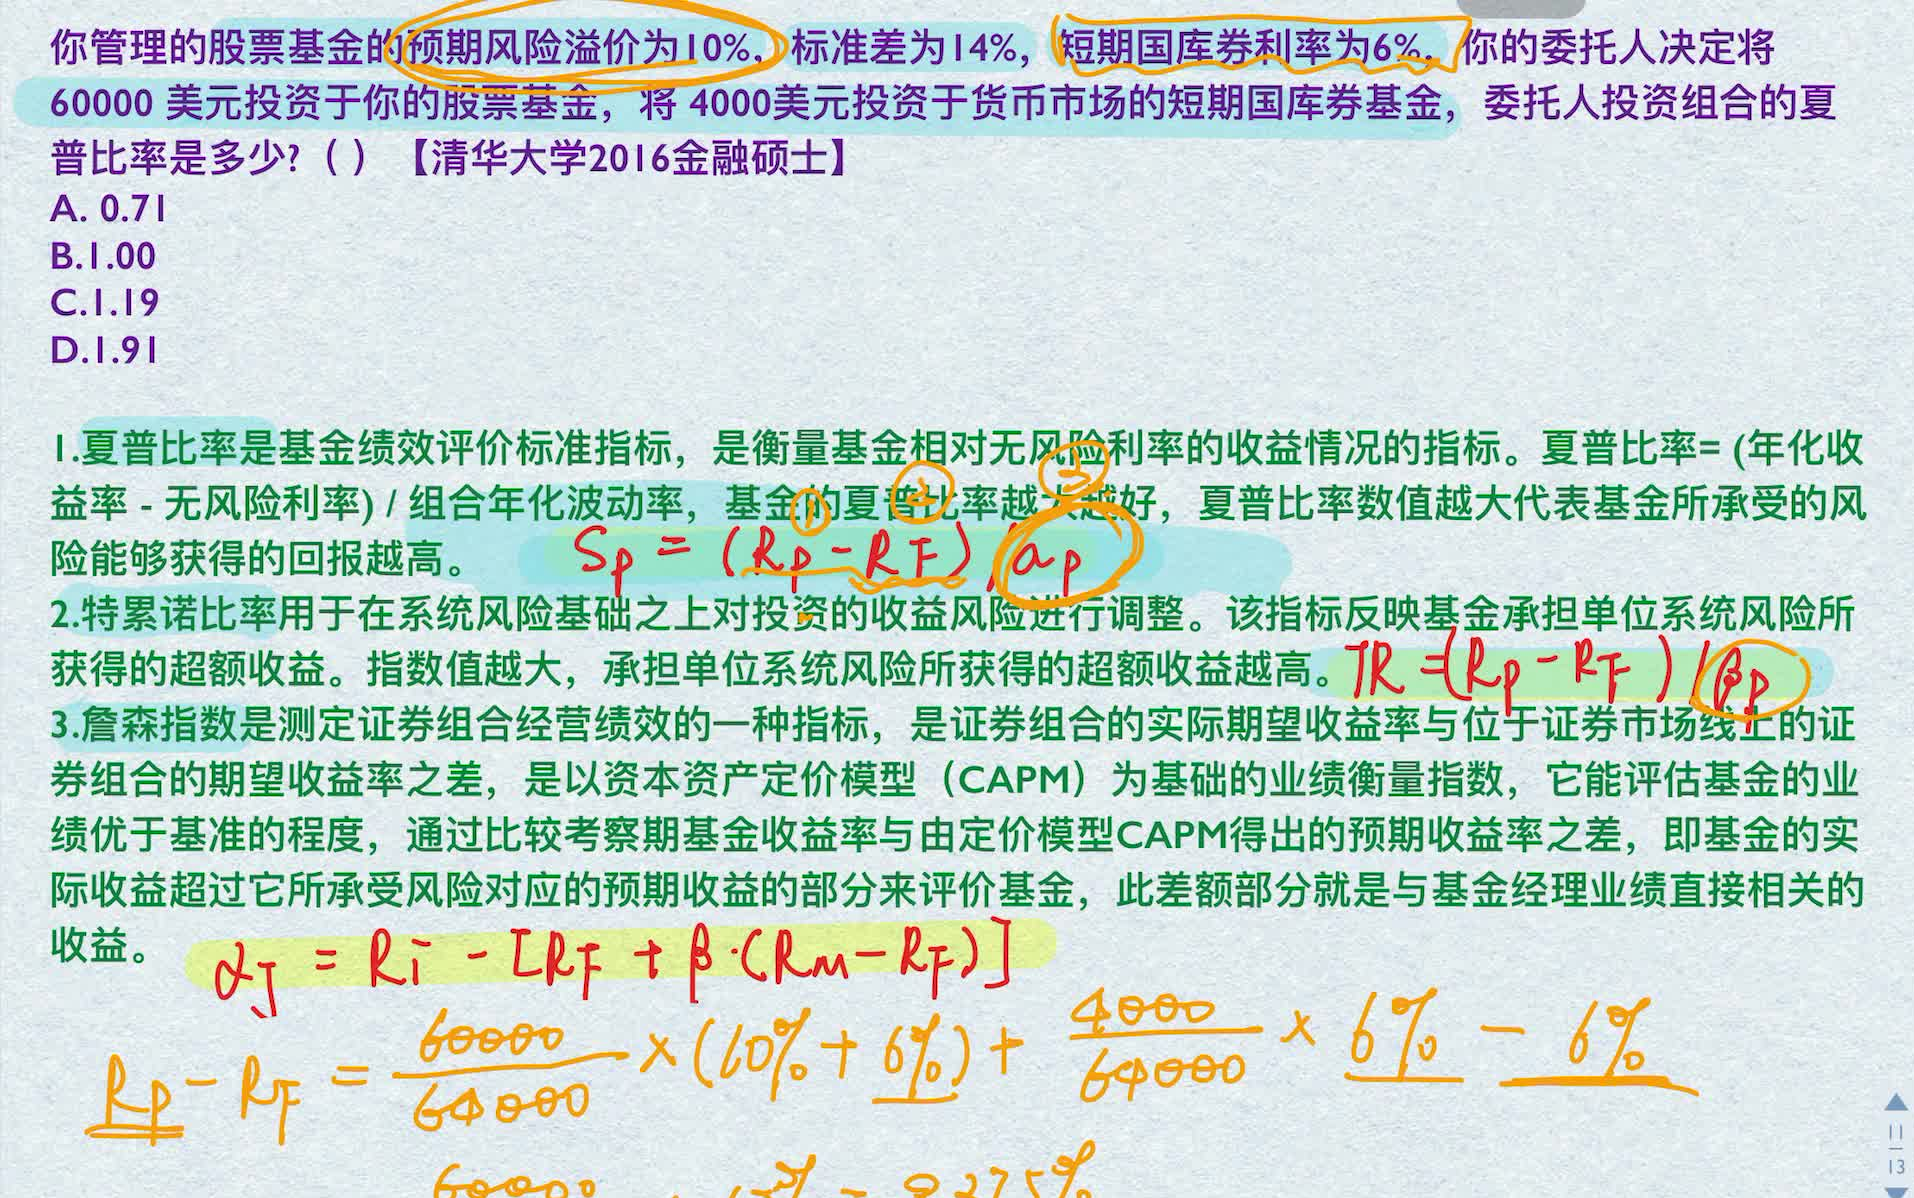 你管理的股票基金的预期风险溢价为10%，标准差为14%，短期国库券利率为6%。你的委托人决定将
60000 美元投资于你的股票基金，将 4000美元投资于货币市场的短期国库券基金，委托人投资组合的夏
普比率是多少?（ ）【清华大学2016金融硕士】
A. 0.71
B.1.00
C.1.19
D.1.91
1.夏普比率是基金绩效评价标准指标，是衡量基金相对无风险利率的收益情况的指标。夏普比率= (年化收
益率 - 无风险利率) / 组合年化波动率，基金的夏普比率越大越好，夏普比率数值越大代表基金所承受的风
险能够获得的回报越高。 Sp = (Rp-RF)/σp
① ② ③
2.特累诺比率用于在系统风险基础之上对投资的收益风险进行调整。该指标反映基金承担单位系统风险所
获得的超额收益。指数值越大，承担单位系统风险所获得的超额收益越高。TR=(Rp-RF)/βp
3.詹森指数是测定证券组合经营绩效的一种指标，是证券组合的实际期望收益率与位于证券市场线上的证
券组合的期望收益率之差，是以资本资产定价模型（CAPM）为基础的业绩衡量指数，它能评估基金的业
绩优于基准的程度，通过比较考察期基金收益率与由定价模型CAPM得出的预期收益率之差，即基金的实
际收益超过它所承受风险对应的预期收益的部分来评价基金，此差额部分就是与基金经理业绩直接相关的
收益。 αJ = Ri - [RF + β·(RM-RF)]
Rp - RF = 60000/64000 × (10% + 6%) + 4000/64000 × 6% - 6%
11
13